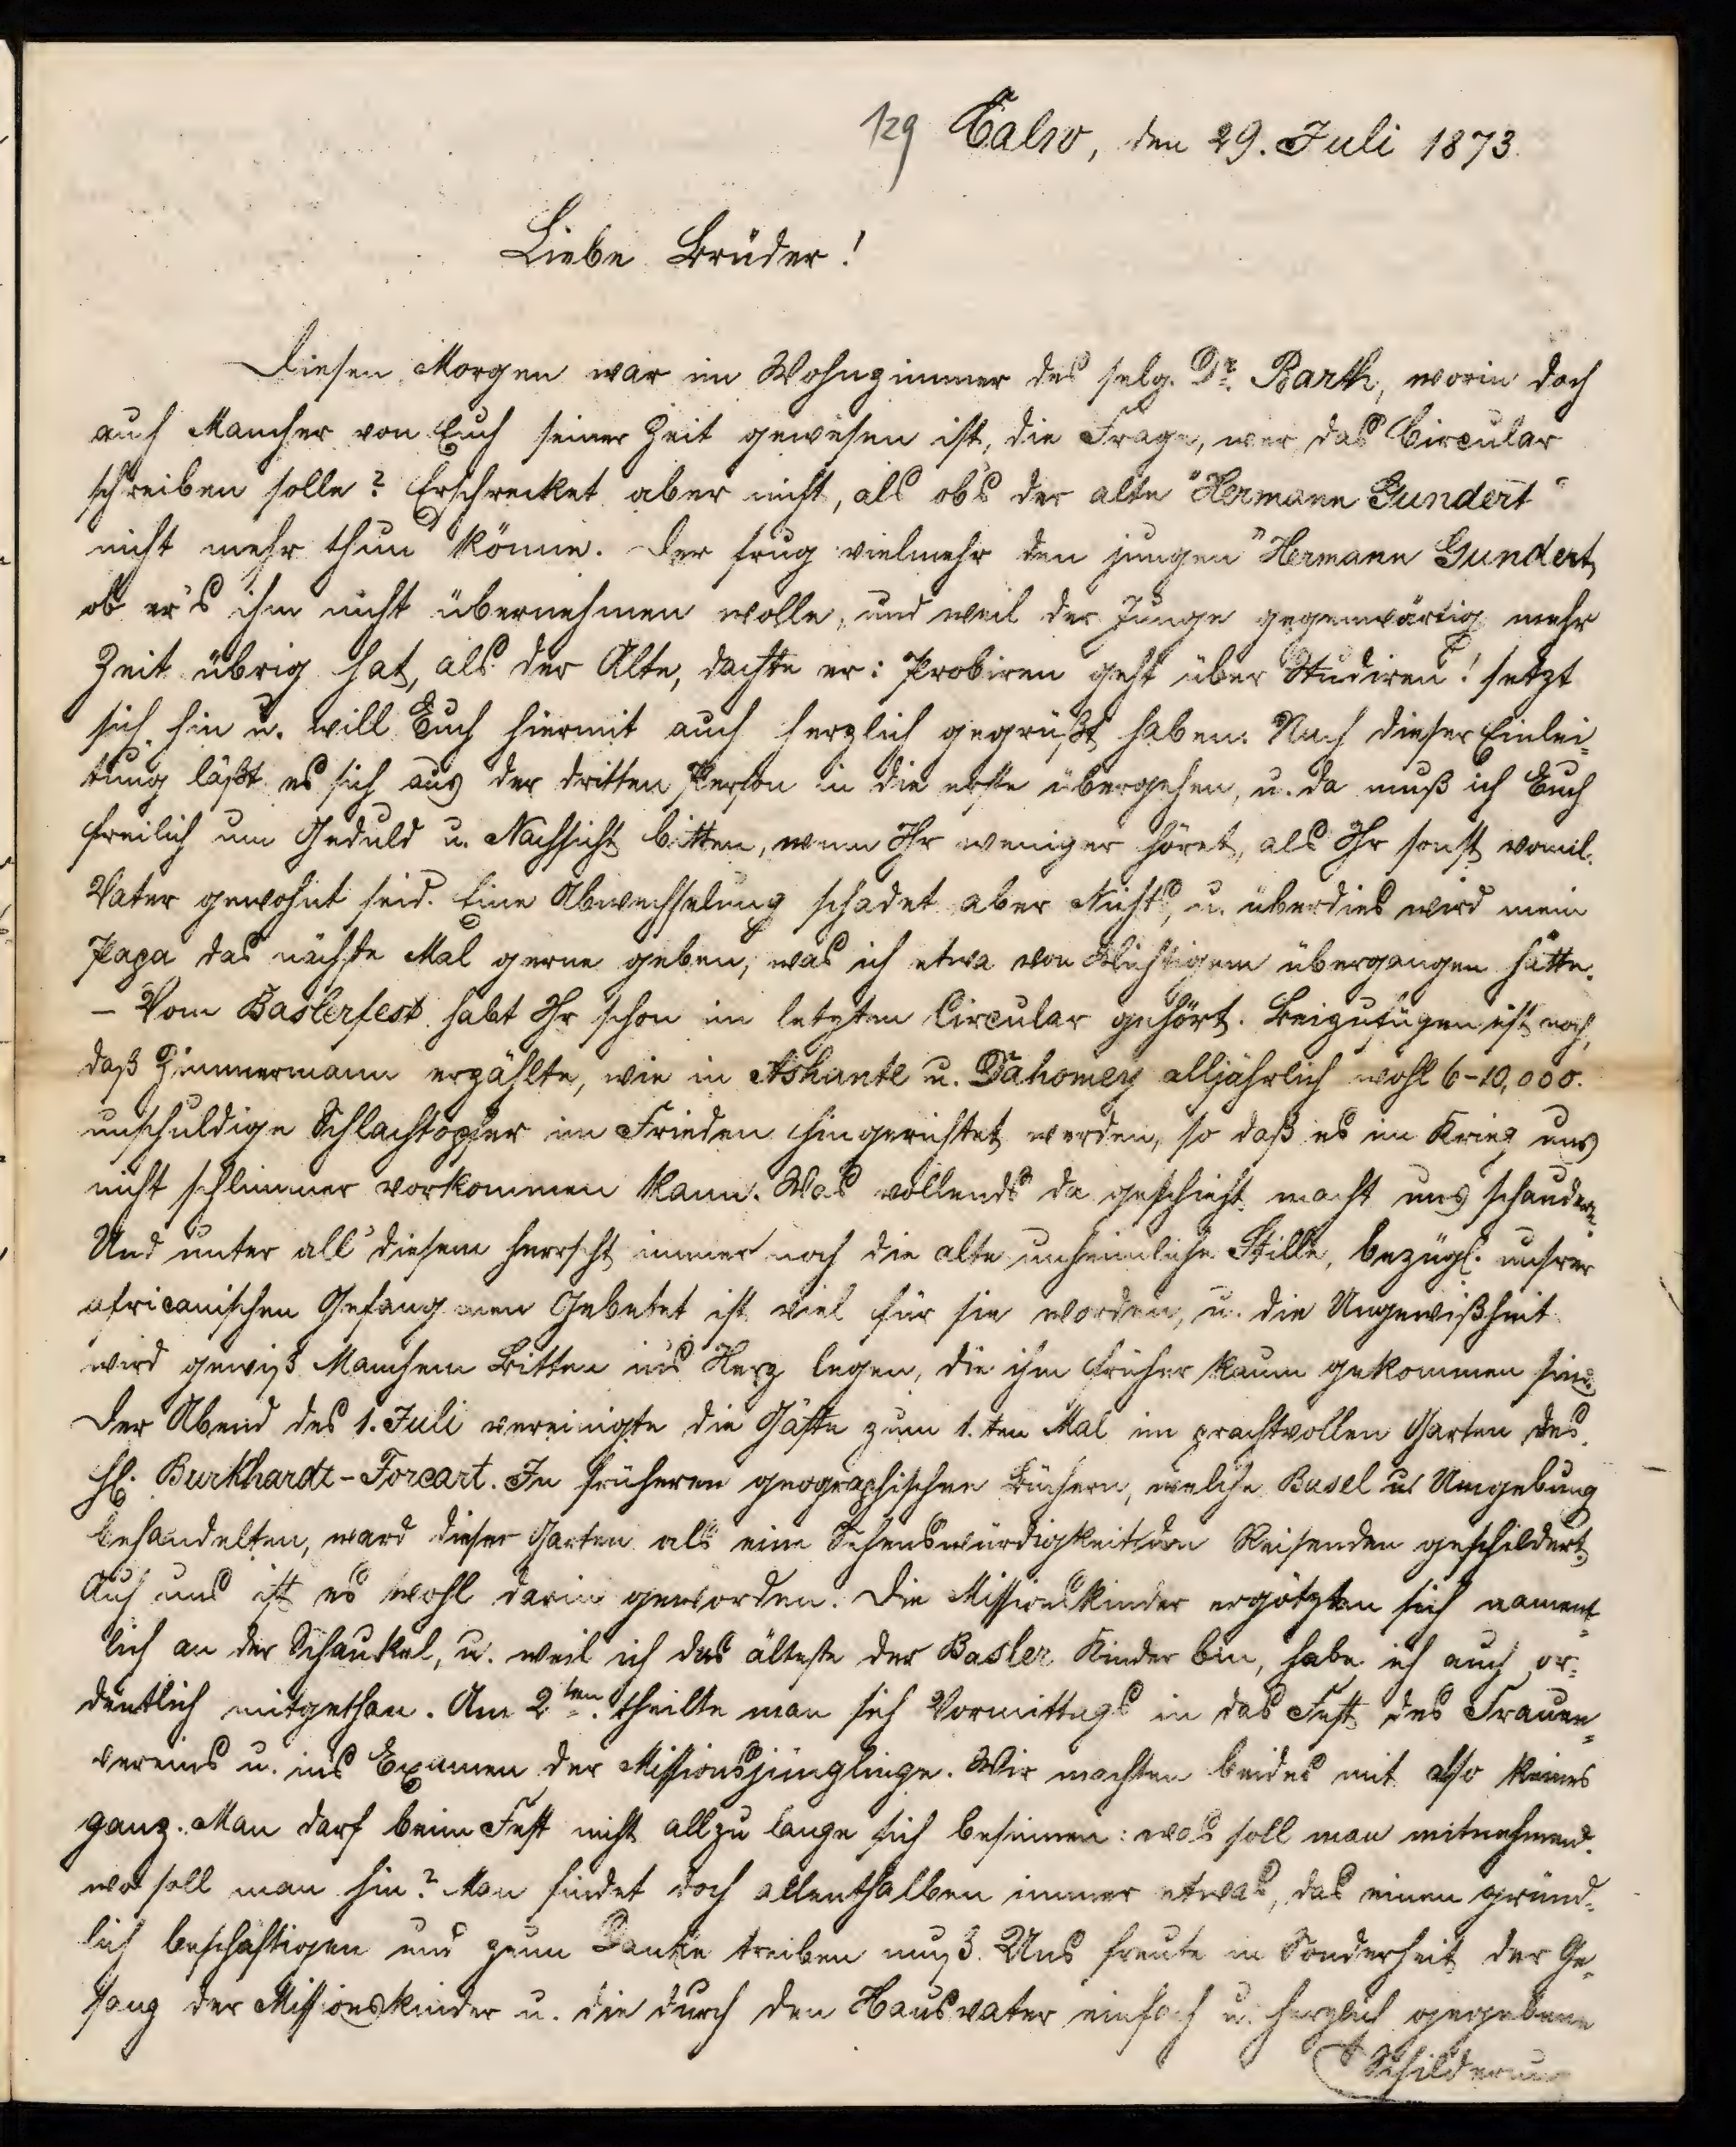 129 Calw, den 29. Juli 1873.
Liebe Brüder!
Diesen Morgen war im Wohnzimmer des selg. Dr. Barth, worin doch
auch Mancher von Euch seiner Zeit gewesen ist, die Frage, wer das Circular
schreiben solle? Erschrecket aber nicht, als ob's der alte "Hermann Gundert"
nicht mehr thun könne. Der frug vielmehr den jungen "Hermann Gundert,
ob er's ihm nicht übernehmen wolle, und weil der Junge gegenwärtig mehr
Zeit übrig hat, als der Alte, dachte er: Probiren geht über Studiren! setzt
sich hin u. will Euch hiermit auch herzlich gegrüßt haben. Nach dieser Einlei-
tung läßt es sich aus der dritten Person in die erste übergehen, u. da muß ich Euch
freilich um Geduld u. Nachsicht bitten, wenn Ihr weniger höret, als Ihr sonst vom l.
Vater gewohnt seid. Eine Abwechselung schadet aber Nichts, u. überdies wird mein
Papa das nächste Mal gerne geben, was ich etwa von Wichtigem übergangen hätte.
– Vom Baslerfest habt Ihr schon im letzten Circular gehört. Beizufügen ist noch,
daß Zimmermann erzählte, wie in Ashante u. Dahomey alljährlich wohl 6-10,000.
unschuldige Schlachtopfer im Frieden hingerichtet werden, so daß es im Krieg uns
nicht schlimmer vorkommen kann. Was vollends da geschieht macht uns schaudern.
Und unter all' diesem herrscht immer noch die alte unheimliche Stille, bezügl. unsrer
africanischen Gefangenen Gebetet ist viel für sie worden, u. die Ungewißheit
wird gewiß Manchem Bitten ins Herz legen, die ihm früher kaum gekommen sind.
Der Abend des 1. Juli vereinigte die Gäste zum 1.ten Mal im prachtvollen Garten des
H. Burkhardt-Forcart. In früheren geographischen Büchern, welche Basel u. Umgebung
behandelten, ward dieser Garten als eine Sehenswürdigkeit den Reisenden geschildert.
Auch uns ist es wohl darin geworden. Die Missionskinder ergötzten sich nament-
lich an der Schaukel, u. weil ich das älteste der Basler Kinder bin, habe ich auch or-
dentlich mitgethan. Am 2ten. theilte man sich Vormittags in das Fest des Frauen-
vereins u. ins Examen der Missionsjünglinge. Wir machten beides mit also keines
ganz. Man darf beim Fest nicht allzu lange sich besinnen: was soll man mitnehmen?
wo soll man hin? Man findet doch allenthalben immer etwas, das einen gründ-
lich beschäftigen und zum Danke treiben muß. Uns freute in Sonderheit der Ge-
sang der Missionskinder u. die durch den Hausvater einfach u. herzlich gegebene
Schilderung